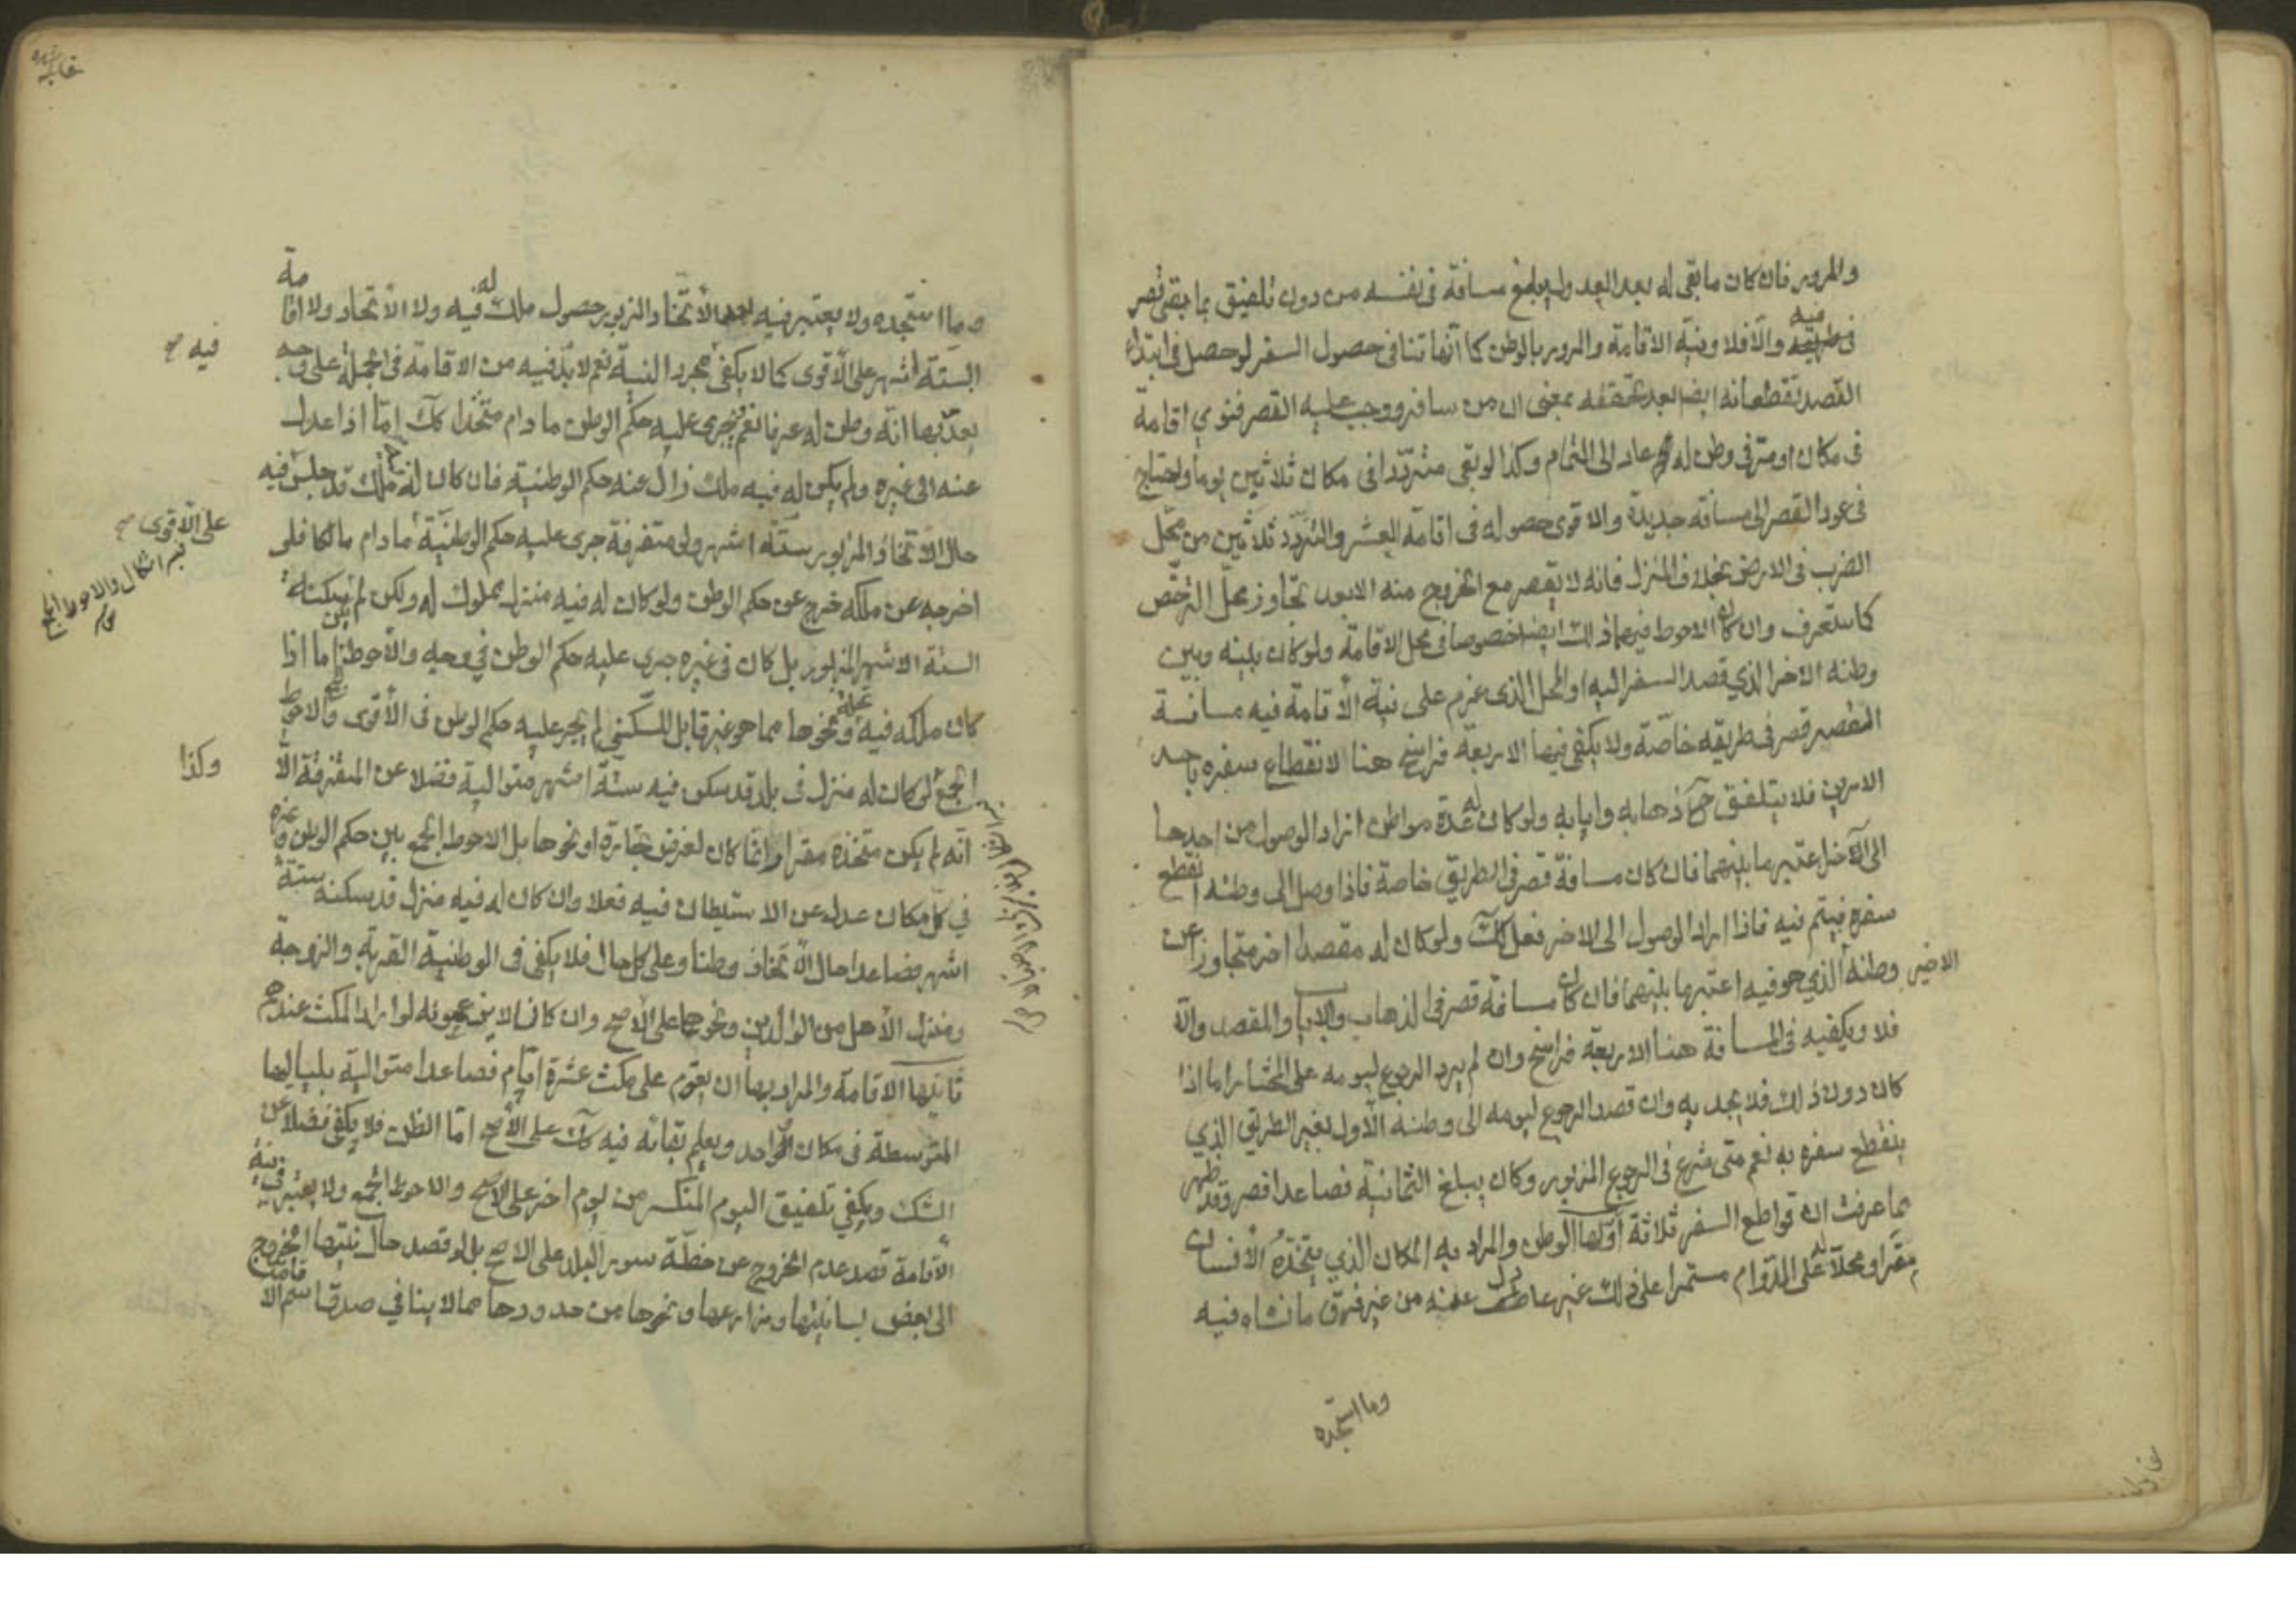 والمرور فان كان ما بقى له بعد العود ولم يبلغ مسافة فى نفسه من دون تلفيق بما بقى قصر
فى طريقه والّا فلا ونية الاقامة والمرور بالوطن كما انّها تنافى حصول السفر لو حصل فى ابتداء
فيه
القصد تقطعانه ايضا بعد تحققه بمعنى ان من سافر ووجب عليه القصر فنوى اقامة
فى مكان او مرّ فى وطن له عاد الى التمام وكذا لو بقى متردّدا فى مكان ثلاثين يوما ويحتاج
فى عود القصر الى مسافة جديدة والاقوى حصوله فى اقامة العشر والتردّد ثلاثين من محّل
الضرب فى الارض بخلاف المنزل فانه لا يقصر مع الخروج منه الا بعد تجاوز محلّ الترخّص
كما ستعرف وان كان الاحوط فيهما ذلك ايضا خصوصا فى محل الاقامة ولو كان بينه وبين
وطنه الاخر الذي قصد السفر اليه او المحل الذى عزم على نية الاقامة فيه مسافة
التقصير قصر فى طريقه خاصّة ولا يكفى فيها الاربعة فراسخ هنا لانقطاع سفره باحد
الامرين فلا يتلفق ذهابه وايابه ولو كان له عدّة مواطن اراد الوصول من احدها
الى الآخر اعتبر ما بينهما فان كان مسافة قصر فى الطريق خاصة فاذا وصل الى وطنه انقطع
سفره فيتم فيه فاذا اراد الوصول الى الاخر فعل كك ولو كان له مقصد اخر متجاوز عن
الاخير وطنه الذي هو فيه اعتبر ما بينهما فان كان مسافة قصر فى الذهاب والاياب والمقصد والّا
فلا ويكفيه فى المسافة هنا الاربعة فراسخ وان لم يرد الرجوع ليومه على المختار اما اذا
كان دون ذلك فلا يجديه وان قصد الرجوع ليومه الى وطنه الاول بغير الطريق الذي
ينقطع سفره به نعم متى شرع فى الرجوع المزبور وكان يبلغ الثمانية فصاعدا قصر وقد ظهر
مما عرفت ان قواطع السفر ثلاثة اوّلها الوطن والمراد به المكان الذي يتخذه الانسان
مقرا ومحلا له على الدوام مستمرا على ذلك غير عادل عنه من غير فرق ما نشاء فيه
وما استجده
وما استجده ولا يعتبر فيه بعد الاتخاذ المزبور حصول ملك له فيه ولا الاتحاد ولا اقامة
الستة اشهر على الاقوى كما لا يكفى مجرد النية نعم لا بدّ فيه من الاقامة فى الجملة على وجه
فيه صح
يعدّ بها انّه وطن له عرفا نعم يجرى عليه حكم الوطن ما دام متخذا كك امّا اذا عدل
عنه الى غيره ولم يكن له فيه ملك زال عنه حكم الوطنية فان كان له ملك قد جلس فيه
حال الاتخاذ المزبور ستّة اشهر ولو متفرقة جرى عليه حكم الوطنيّة ما دام مالكا فلو
على الاقوى صح
فيه اشكال والاحوط الجمع
اخرجه عن ملكه خرج عن حكم الوطن ولو كان له فيه منزل مملوك له ولكن لم يسكنه
الستة الاشهر المزبور بل كان فى غيره جرى عليه حكم الوطن فى وجه والاحوط اما اذا
كان ملكه فيه نخلة ونحوها مما هو غير قابل للسكنى لم يجر عليه حكم الوطن فى الاقوى والاحوط
الجمع لو كان له منزل فى بلد قد سكن فيه ستّة اشهر متوالية فضلا عن المتفرقة الّا
وكذا
انّه لم يكن متخذه مقرا وانّما كان لغرض تجارة او نحوها بل الاحوط الجمع بين حكم الوطن وغيره
في كلّ مكان عدل عن الاستيطان فيه فعلا وان كان له فيه منزل قد سكنه ستة
اشهر فصاعدا حال اتخاذه وطنا وعلى كل حال فلا يكفى فى الوطنية القرية والزوجة
ومنزل الاهل من الوالدين ونحوهما على الاصح وان كانا لا يزعجونه لو اراد المكث عندهم
ثانيها الاقامة والمراد بها ان يعزم على مكث عشرة ايّام فصاعدا متوالية بلياليها
المتوسطة فى مكان واحد ويعلم بقائه فيه كك على الاصح امّا الظن فلا يكفى فضلا عن
الشك ويكفي تلفيق اليوم المنكسر من يوم اخر على الاصح والاحوط الجمع ولا يعتبر فى نية
الاقامة قصد عدم الخروج عن خطّة سور البلد على الاصح بل لو قصد حال نيتها الخروج
الى بعض بساتينها ومزارعها ونحوها من حدودها مما لا ينافي صدق اسم الاقامة